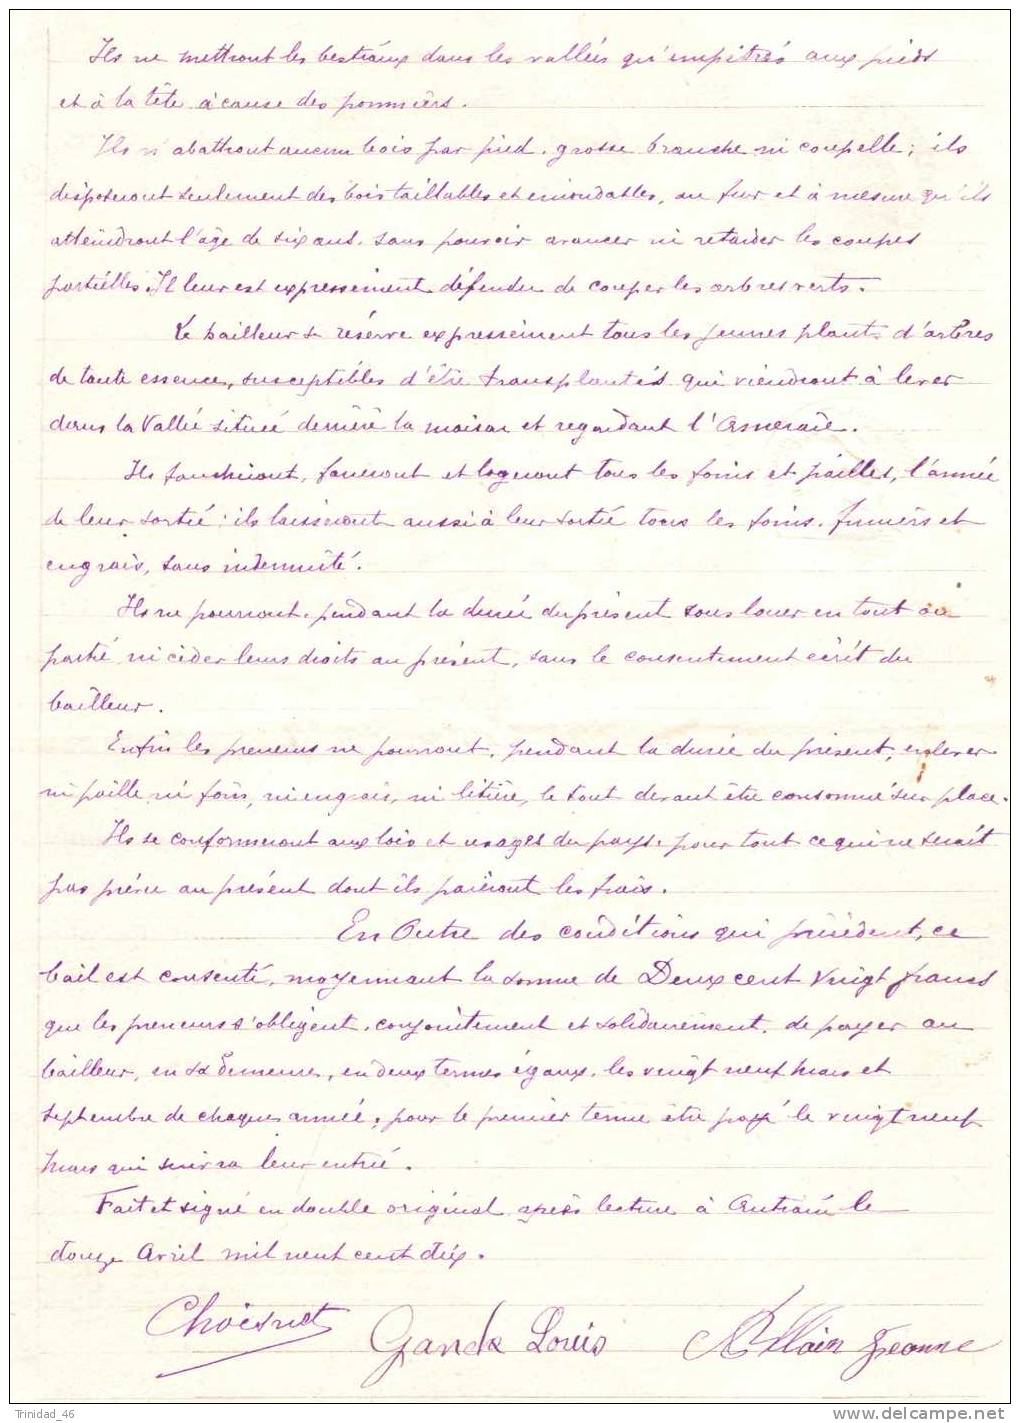 Ils ne mettront les bestiaux dans les vallées qu'empêtrés aux pieds
et à la tête à cause des pommiers.
Ils n'abattront aucun bois par pied, grosse branche ni coupelle; ils
disposeront seulement des bois taillables et émondables, au fur et à mesure qu'ils
atteindront l'âge de six ans, sans pouvoir avancer ni retarder les coupes
partielles. Il leur est expressément défendu de couper les arbres verts.
Le bailleur se réserve expressément tous les jeunes plants d'arbres
de toute essence, susceptibles d'être transplantés qui viendront à lever
dans la Vallée située derrière la maison et regardant l'Asneraie.
Ils faucheront, faneront et logeront tous les foins et pailles, l'année
de leur sortie; ils laisseront aussi à leur sortie tous les foins, fumiers et
engrais, sans indemnité.
Ils ne pourront, pendant la durée du présent sous louer en tout ou
partie ni céder leurs droits au présent, sans le consentement écrit du
bailleur.
Enfin les preneurs ne pourront, pendant la durée du présent, enlever
ni paille ni foin, ni engrais, ni litière, le tout devant être consommé sur place.
Ils se conformeront aux lois et usages du pays, pour tout ce qui ne serait
pas prévu au présent dont ils paieront les frais.
En Outre des conditions qui précèdent, ce
bail est consenti, moyennant la somme de Deux cent vingt francs
que les preneurs s'obligent, conjointement et solidairement, de payer au
bailleur, en sa Demeure, en deux termes égaux, les vingt neuf mars et
septembre de chaque année, pour le premier terme être payé le vingt neuf
mars qui suivra leur entrée.
Fait et signé en double original après lecture à Antrain le
douze Avril mil neuf cent dix.
Choësnet Gandz Louis Allain Jeanne
Trinidad_46
www.delcampe.net